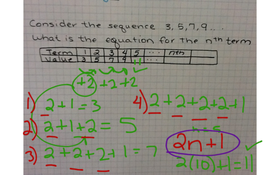 Consider the sequence 3, 5, 7, 9...
What is the equation for the nth term
Term 1 2 3 4 5 ... nth
Value 3 5 7 9 11
+2 +2 +2
1) 2+1=3
4) 2+2+2+2+1
2) 2+1+2=5
2n+1
3) 2+2+2+1=7
2(10)+1=11